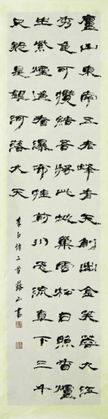 廬山東南五老峰青天削出金芙蓉九江
秀色可攬結吾將此地巢雲松日照香爐
生紫煙遙看瀑布掛前川飛流直下三千
尺疑是銀河落九天
李白詩二首 書